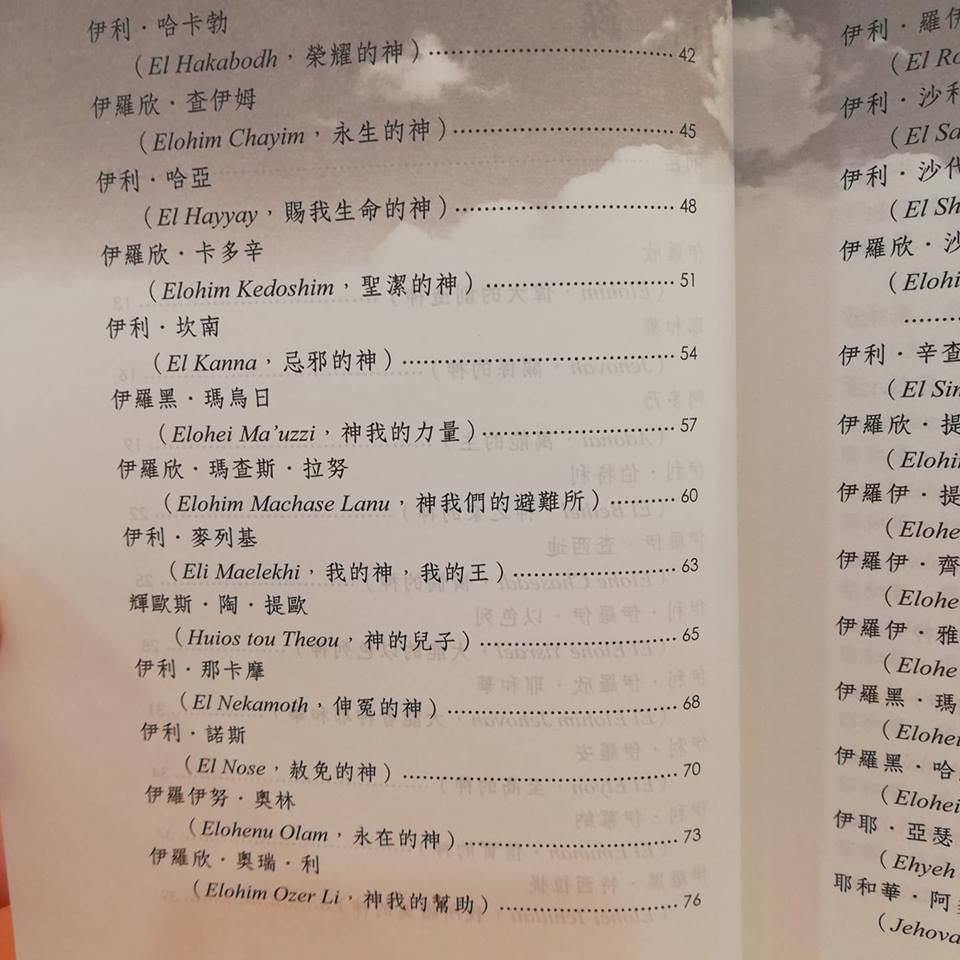 伊利·哈卡勃
（El Hakabodh，榮耀的神）................ 42
伊羅欣·查伊姆
（Elohim Chayim，永生的神）................ 45
伊利·哈亞
（El Hayyay，賜我生命的神）................ 48
伊羅欣·卡多辛
（Elohim Kedoshim，聖潔的神）................ 51
伊利·坎南
（El Kanna，忌邪的神）................ 54
伊羅黑·瑪烏日
（Elohei Ma’uzzi，神我的力量）................ 57
伊羅欣·瑪查斯·拉努
（Elohim Machase Lanu，神我們的避難所）.......... 60
伊利·麥列基
（Eli Maelekhi，我的神，我的王）................ 63
輝歐斯·陶·提歐
（Huios tou Theou，神的兒子）................ 65
伊利·那卡摩
（El Nekamoth，伸冤的神）................ 68
伊利·諾斯
（El Nose，赦免的神）................ 70
伊羅伊努·奧林
（Elohenu Olam，永在的神）................ 73
伊羅欣·奧瑞·利
（Elohim Ozer Li，神我的幫助）................ 76
伊利·羅伊
（El Ro
伊利·沙利
（El Sa
伊利·沙代
（El Sh
伊羅欣·沙
（Elohi
.........
伊利·辛查
（El Sin
伊羅欣·提
（Elohi
伊羅伊·提
（Elohe
伊羅伊·齊
（Elohe
伊羅伊·雅
（Elohe
伊羅黑·瑪
（Elohei
伊羅黑·哈
（Elohei
伊耶·亞瑟
（Ehyeh
耶和華·阿
（Jehova